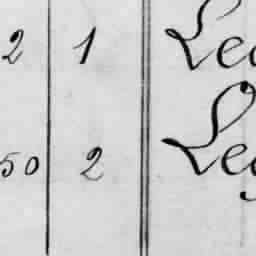 2 1 Lec
50 2 Leg